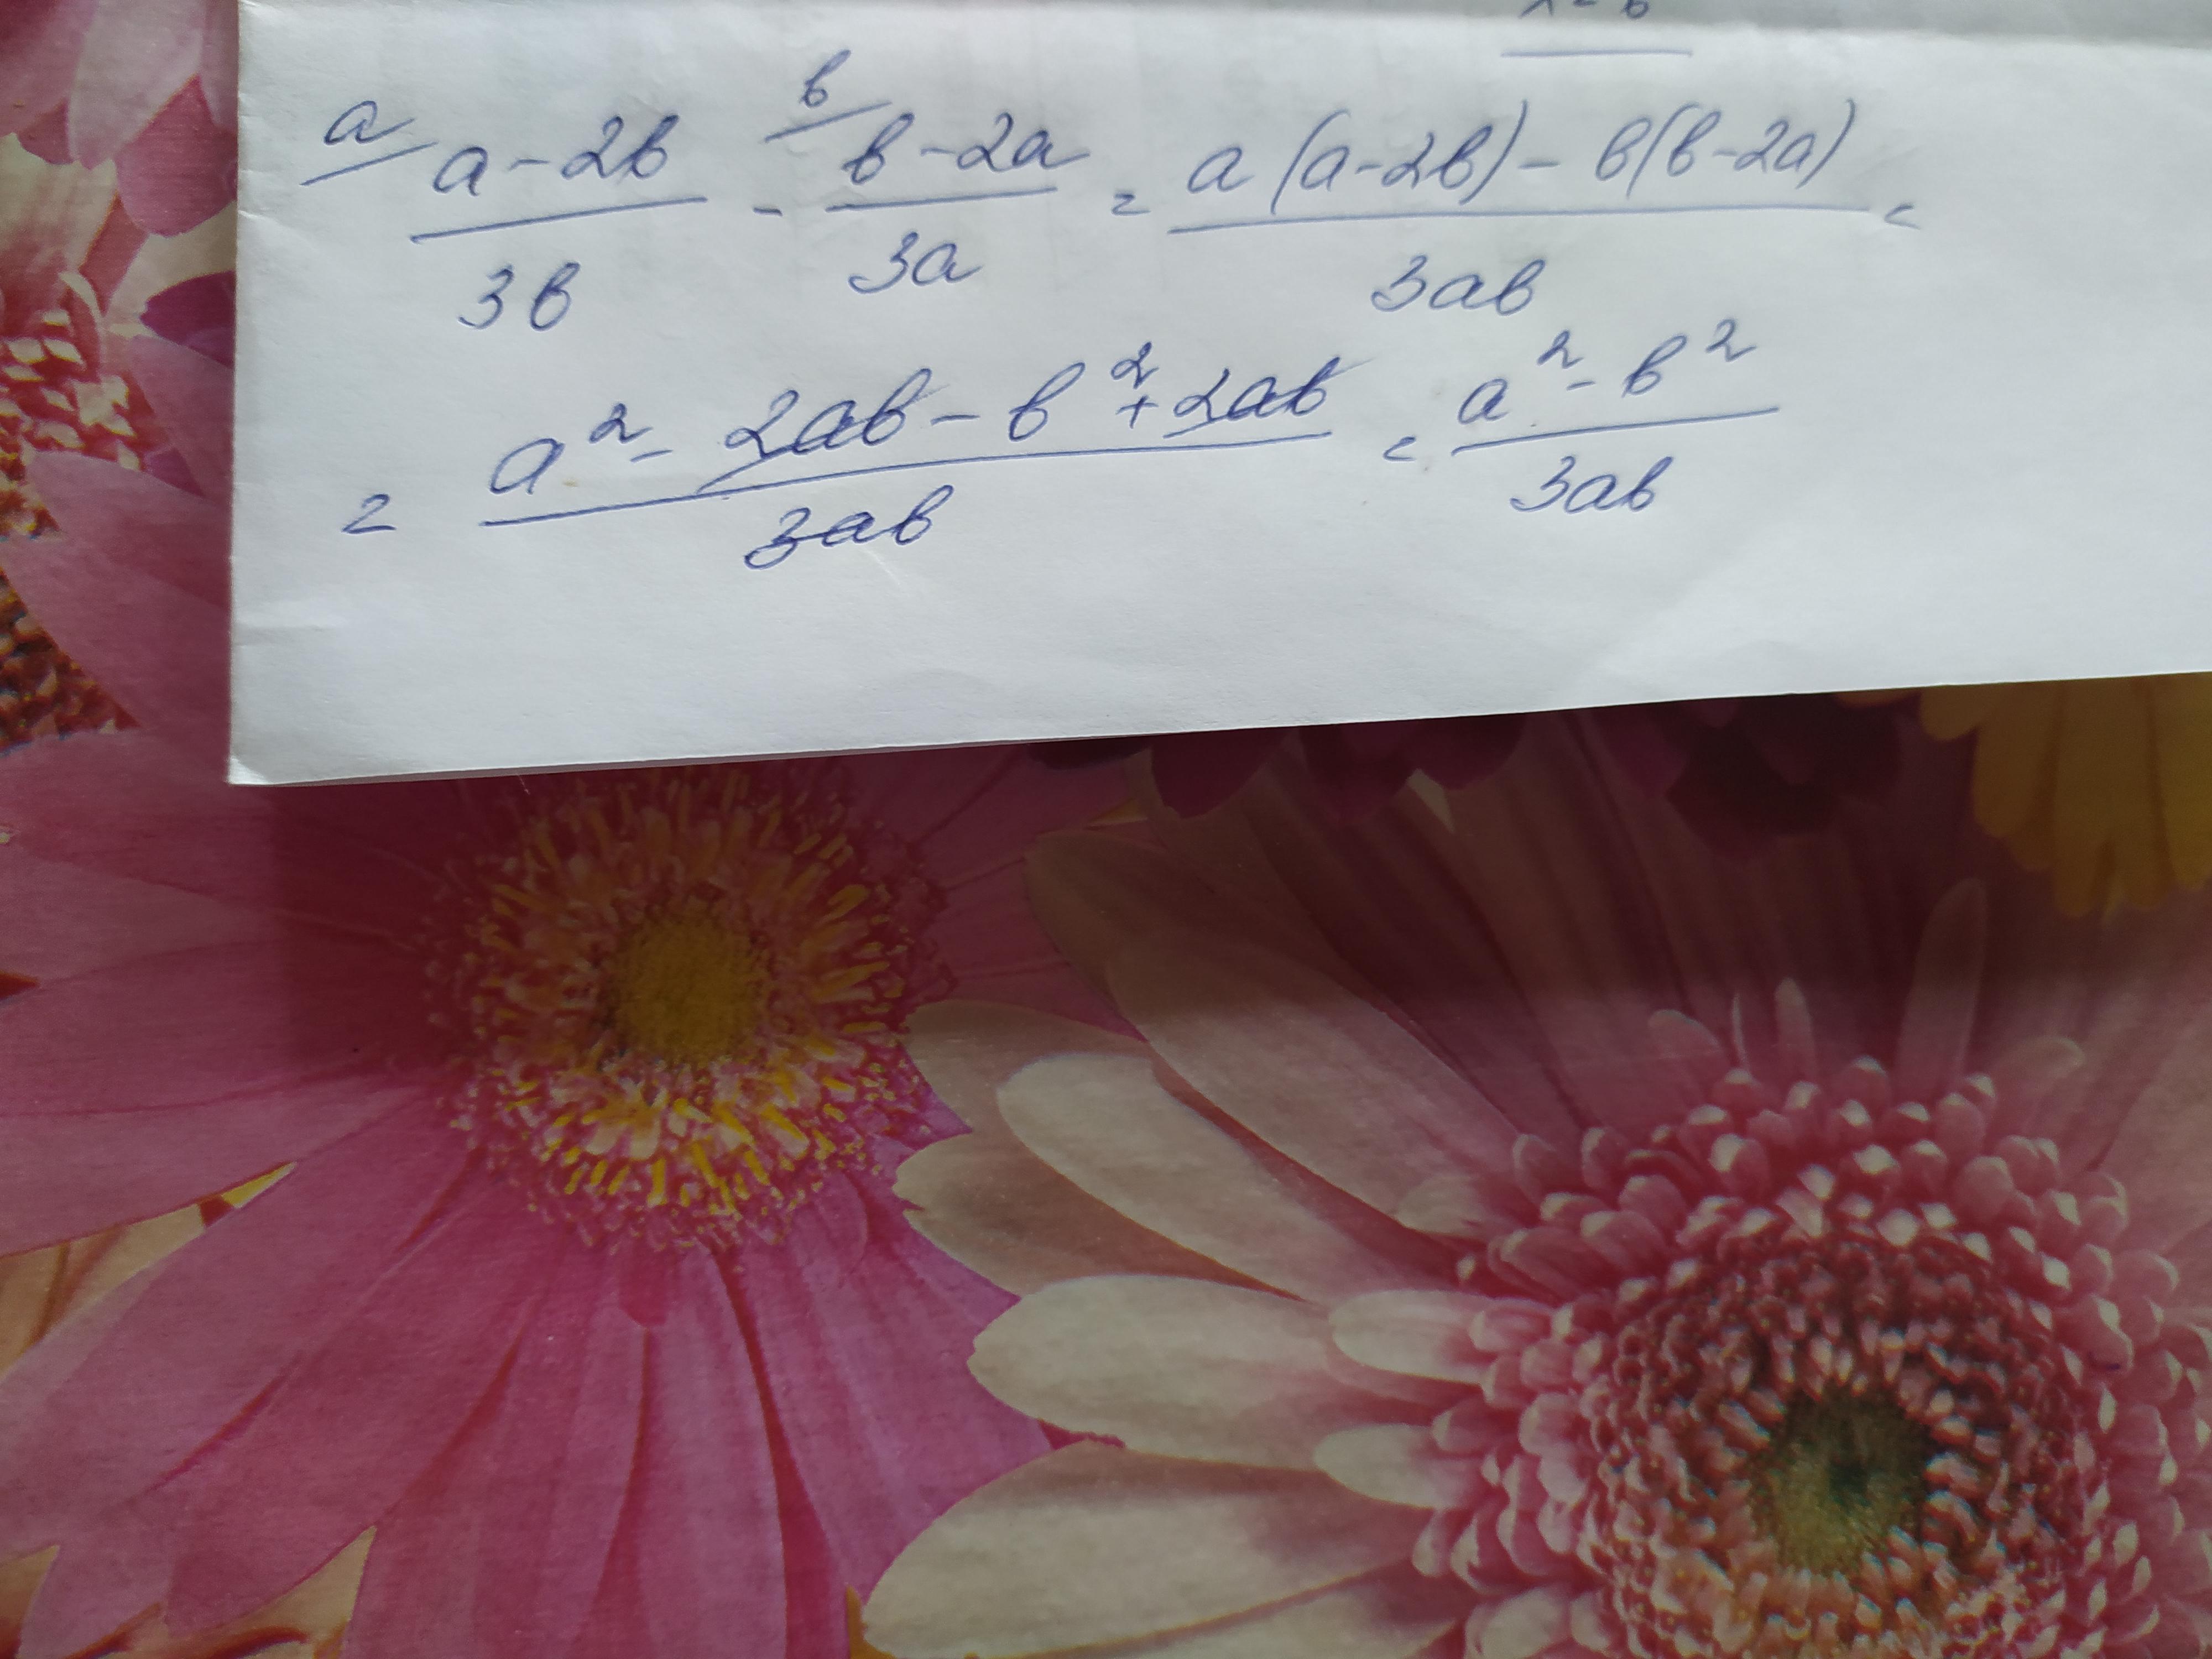 a/ (a-2b)/(3b) - b/ (b-2a)/(3a) = (a(a-2b) - b(b-2a))/(3ab) =
= (a² - 2ab - b² + 2ab)/(3ab) = (a² - b²)/(3ab)